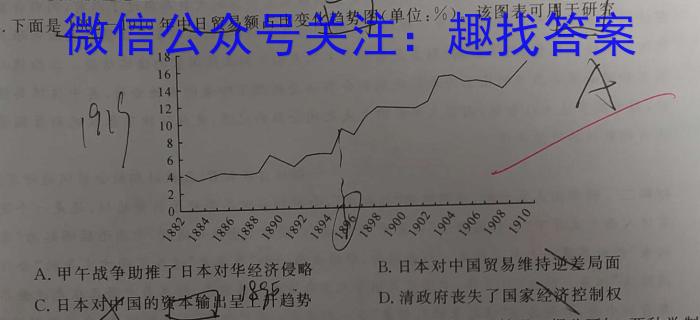 .下面是
年中日贸易额占比变化趋势图(单位:%)，该图表可用于研究
微信公众号关注：趣找答案
18
16
14
12
10
8
6
4
2
0
1882 1884 1886 1888 1890 1892 1894 1896 1898 1900 1902 1904 1906 1908 1910
A
A.甲午战争助推了日本对华经济侵略
B.日本对中国贸易维持逆差局面
1895
C.日本对中国的资本输出呈上升趋势
D.清政府丧失了国家经济控制权